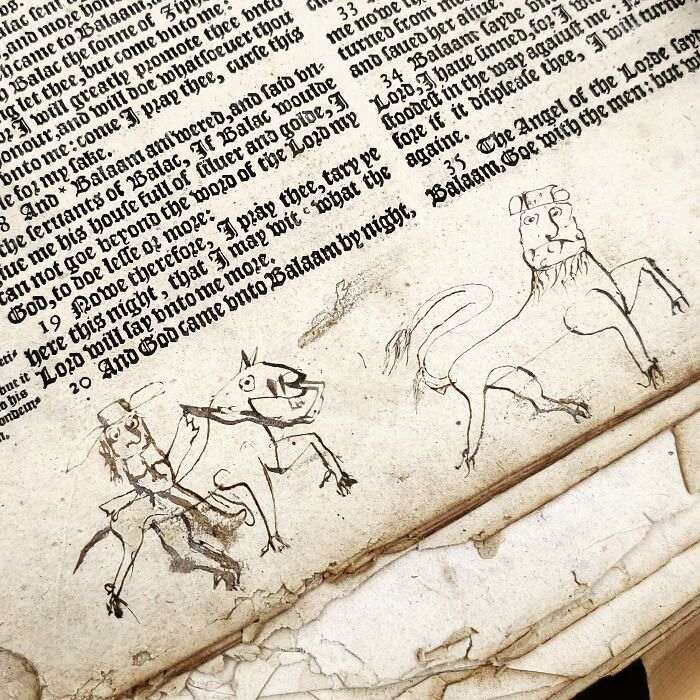 and more
came to Balaam
Balac the sonne of
let thee, but come vnto me:
I will greatly promote thee vnto
onour, and will doe whatsoeuer thou
vnto me: come I pray thee, curse this
le for my sake.
8 And * Balaam answered, and said vn-
the seruants of Balac, If Balac woulde
iue me his house full of siluer and golde, I
can not goe beyond the word of the Lord my
God, to doe lesse or more:
19 Nowe therefore, I pray thee, tary ye
here this night, that I may wit c what the
Lord will say vnto me more.
20 And God came vnto Balaam by night,
but it
his
33
me nowe
turned from me
and saued her aliue.
34 Balaam sayde
Lord, I haue sinned, for I
stoodest in the way against me:
fore if it displease thee, I will turne
againe.
35 The Angel of the Lorde
Balaam, Goe with the men; but